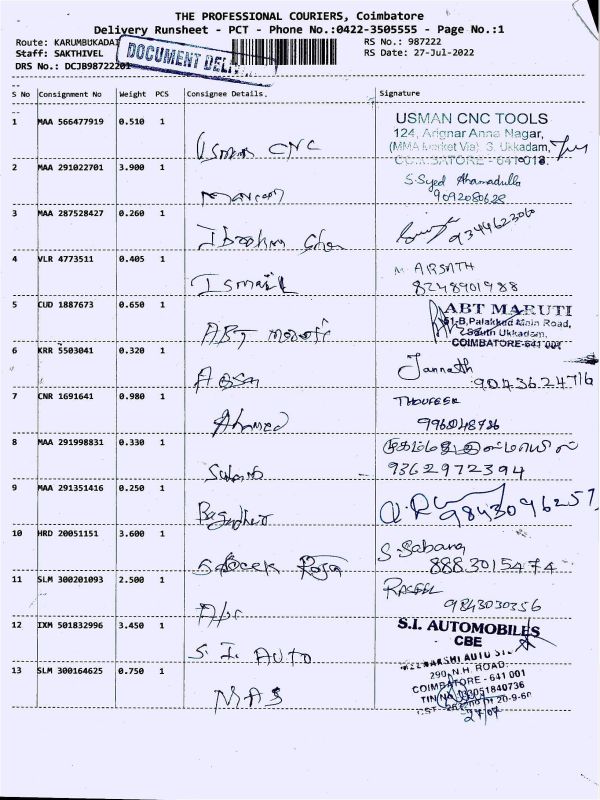 THE PROFESSIONAL COURIERS, Coimbatore
Delivery Runsheet - PCT - Phone No.:0422-3505555 - Page No.:1
Route: KARUMBUKADAI
RS No.: 987222
Staff: SAKTHIVEL
RS Date: 27-Jul-2022
DRS No.: DCJB98722201
DOCUMENT DEL
S No Consignment No Weight PCS Consignee Details. Signature
1 MAA 566477919 0.510 1
Usman CNC
USMAN CNC TOOLS
124, Arignar Anna Nagar,
(MMA Market Via) S. Ukkadam,
COIMBATORE - 641 018.
2 MAA 291022701 3.900 1
S.Syed Ahamadulla
9092080628
3 MAA 287528427 0.260 1
Ibrahim
9344623060
4 VLR 4773511 0.405 1
Ismail
M ARSATH
8248901988
5 CUD 1887673 0.650 1
ABT Maruti
ABT MARUTI
51-B, Palakkad Main Road,
South Ukkadam,
COIMBATORE-641 001
6 KRR 5503041 0.320 1
Jannath
9043624716
7 CNR 1691641 0.980 1
Ahmed
THOUFEEK
8 MAA 291998831 0.330 1
9362972394
9 MAA 291351416 0.250 1
9843096257
10 HRD 20051151 3.600 1
S. Sabana
8883015474
11 SLM 300201093 2.500 1
9843030356
12 IXM 501832996 3.450 1
S I Auto
S.I. AUTOMOBILES
CBE
13 SLM 300164625 0.750 1
MAS
290, N.H. ROAD.
COIMBATORE - 641 001
27/07